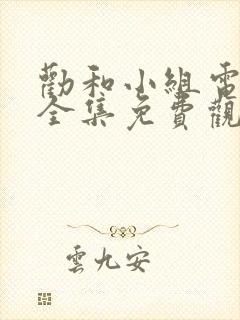 勸和小組電
全集免費觀
雲九安